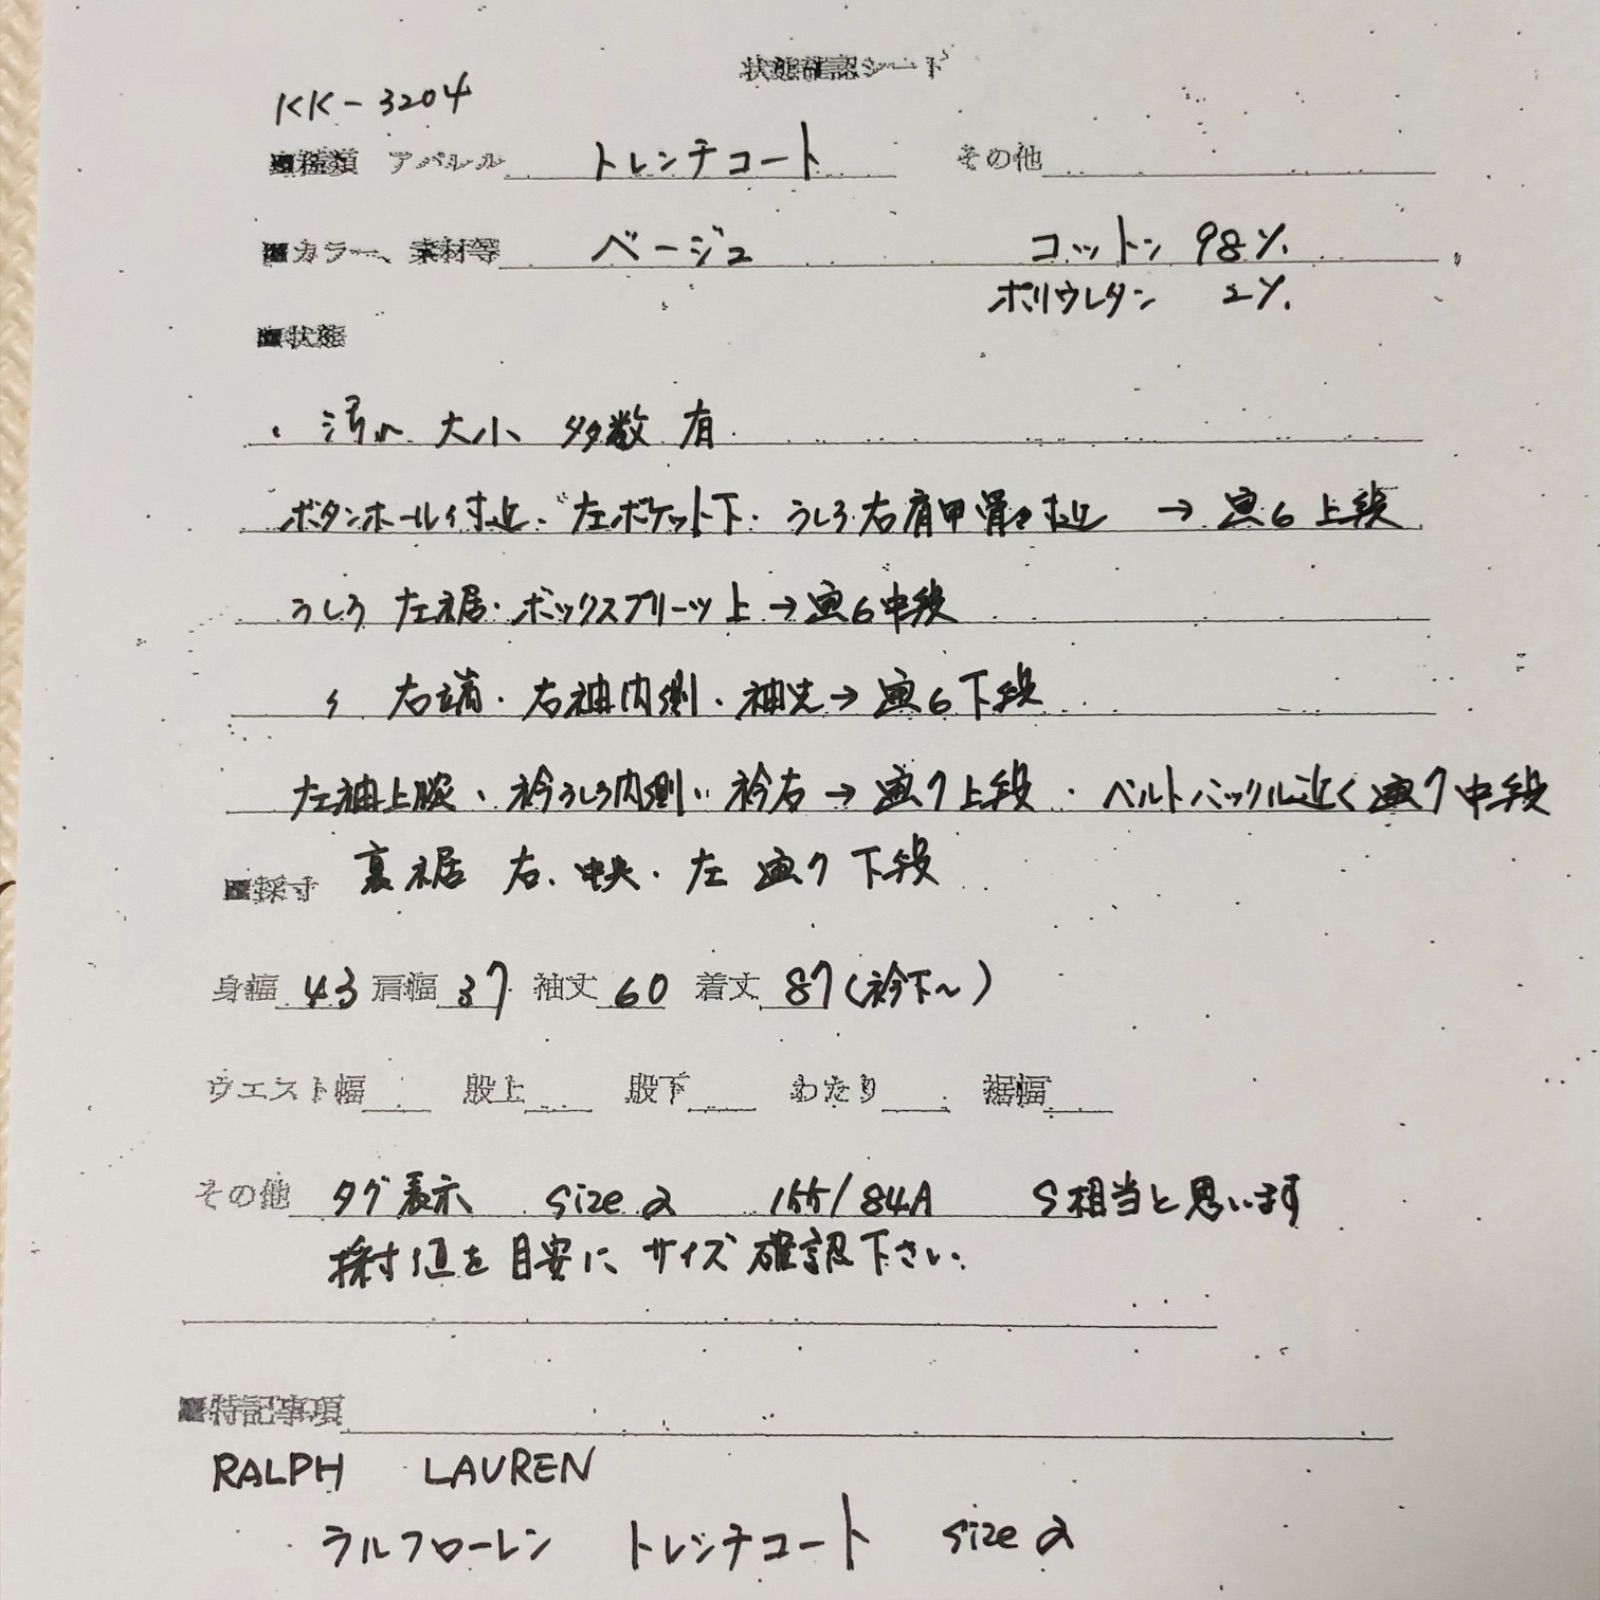 状態確認シート
KK-3204
■種類 アパレル トレンチコート その他
■カラー、素材等 ベージュ コットン 98%
ポリウレタン 2%
■状態
・汚れ 大小 多数 有
ボタンホール付近・左ポケット下・うしろ右肩甲骨付近 → 画6上段
うしろ 左裾・ボックスプリーツ上→画6中段
〃 右端・右袖内側・袖先→画6下段
左袖上腕・衿うしろ内側・衿右→画7上段・ベルトバックル近く画7中段
裏裾 右・中央・左 画7 下段
■採寸
身幅 43 肩幅 37 袖丈 60 着丈 87(衿下~)
ウエスト幅 股上 股下 わたり 裾幅
その他 タグ表示 size 2 155/84A S相当と思います
採寸値を目安にサイズ確認下さい。
■特記事項
RALPH LAUREN
ラルフローレン トレンチコート size 2